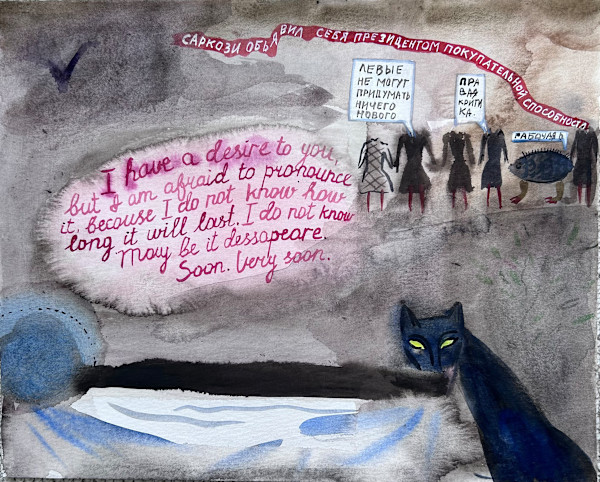 САРКОЗИ ОБЪЯВИЛ СЕБЯ ПРЕЗИДЕНТОМ ПОКУПАТЕЛЬНОЙ СПОСОБНОСТИ.
ЛЕВЫЕ
НЕ МОГУТ
ПРИДУМАТЬ
НИЧЕГО
НОВОГО
ПРА
ВАЯ
КРИТИ
КА.
I have a desire to you,
but I am afraid to pronounce
it, because I do not know how
long it will last. I do not know
May be it dessapeare.
Soon. Very soon.